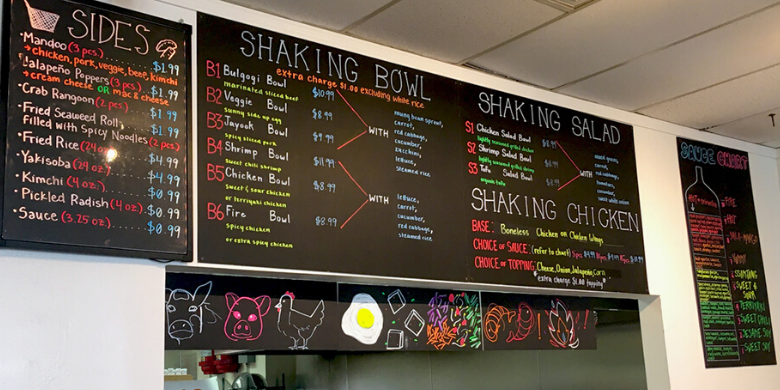 SIDES
Mandoo (3 pcs.) $1.99
→ chicken, pork, veggie, beef, kimchi
Jalapeño Poppers (3 pcs.) $1.99
→ cream cheese OR mac & cheese
Crab Rangoon (2 pcs.) $1.99
Fried Seaweed Roll, $1.99
filled with Spicy Noodles (2 pcs)
Fried Rice (24 oz) $4.99
Yakisoba (24 oz) $4.99
Kimchi (4 oz.) $0.99
Pickled Radish (4 oz.) $0.99
Sauce (3.25 oz) $0.99
SHAKING BOWL
extra charge $1.00 excluding white rice
B1 Bulgogi Bowl $10.99
marinated sliced beef
B2 Veggie Bowl $8.99
sunny side up egg
B3 Jayook Bowl $9.99
spicy sliced pork
B4 Shrimp Bowl $11.99
sweet chili shrimp
B5 Chicken Bowl $8.99
sweet & sour chicken
or teriyaki chicken
B6 Fire Bowl $8.99
spicy chicken
or extra spicy chicken
WITH
mung bean sprout,
carrot,
red cabbage,
cucumber,
zucchini,
lettuce,
steamed rice
WITH
lettuce,
carrot,
cucumber,
red cabbage,
steamed rice
SHAKING SALAD
S1 Chicken Salad Bowl $8.99
lightly seasoned grilled chicken
S2 Shrimp Salad Bowl
lightly seasoned grilled shrimp
S3 Tofu Salad Bowl
organic tofu
WITH
mixed greens,
carrot,
red cabbage,
tomatoes,
cucumber,
sweet white onion
SHAKING CHICKEN
BASE: Boneless Chicken OR Chicken Wings
CHOICE OF SAUCE: (refer to chart)
CHOICE OF TOPPING: Cheese, Onion, Jalapeno, Corn
*extra charge $1.00 topping*
SAUCE CHART
FIRE
HOT
SWEET &
SOUR
TERIYAKI
SWEET CHILI
SESAME SOY
SWEET SOY